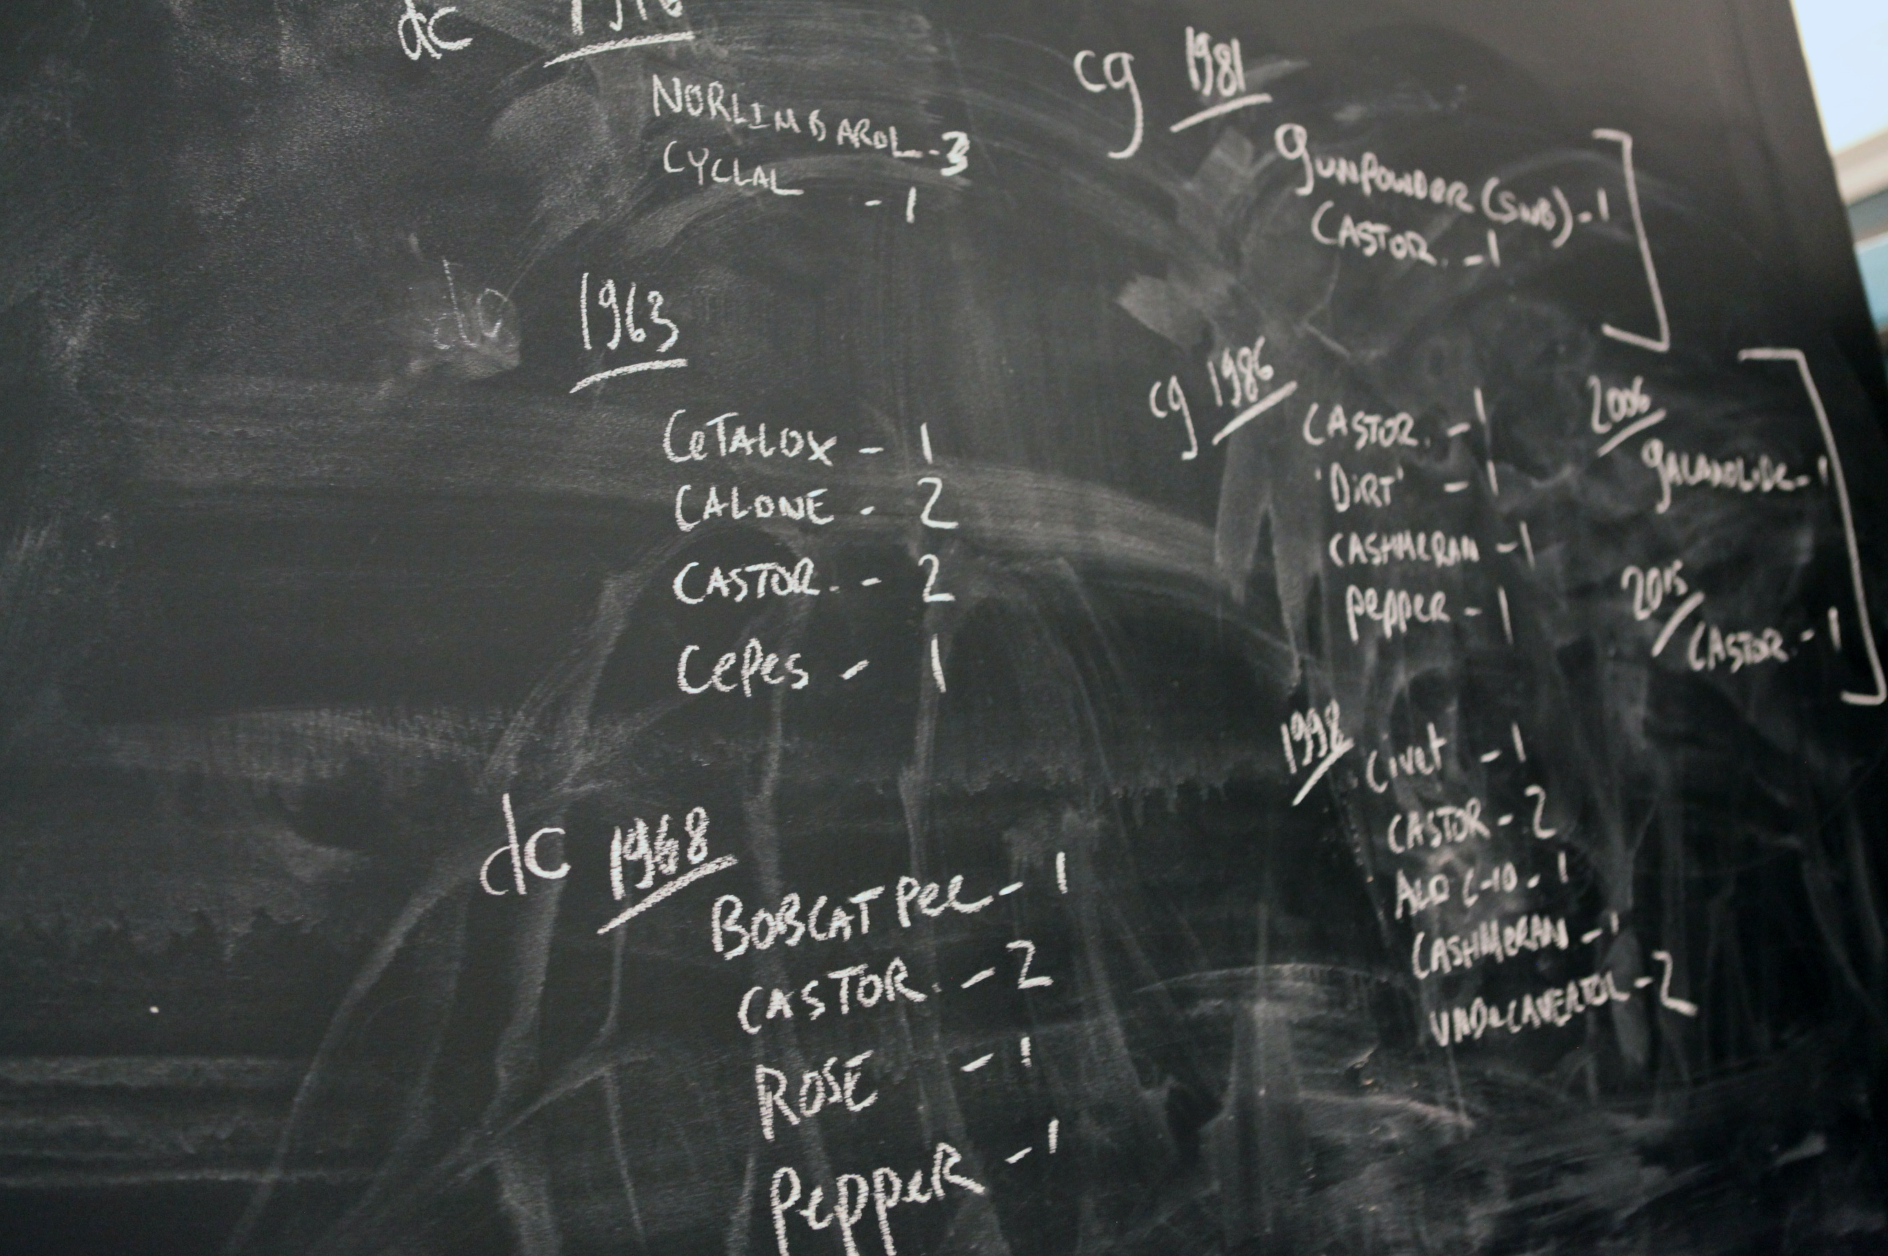 dc
NORLIMBAROL - 3
CYCLAL - 1
dc 1963
CeTALOX - 1
CALONE - 2
CASTOR. - 2
CePes - 1
dc 1968
BOBCAT Pee - 1
CASTOR. - 2
ROSE - 1
PePPeR - 1
cg 1981
gunPowder (SWB) - 1
CASTOR. - 1
cg 1986
CASTOR. - 1
'DiRT' - 1
CASHMeRAN - 1
PePPeR - 1
1998
Civet - 1
CASTOR - 2
ALD C-10 - 1
CASHMeRAN - 1
UNDeCAVERTOL - 2
2006
gALAXOLiDe - 1
2015
CASTOR. - 1